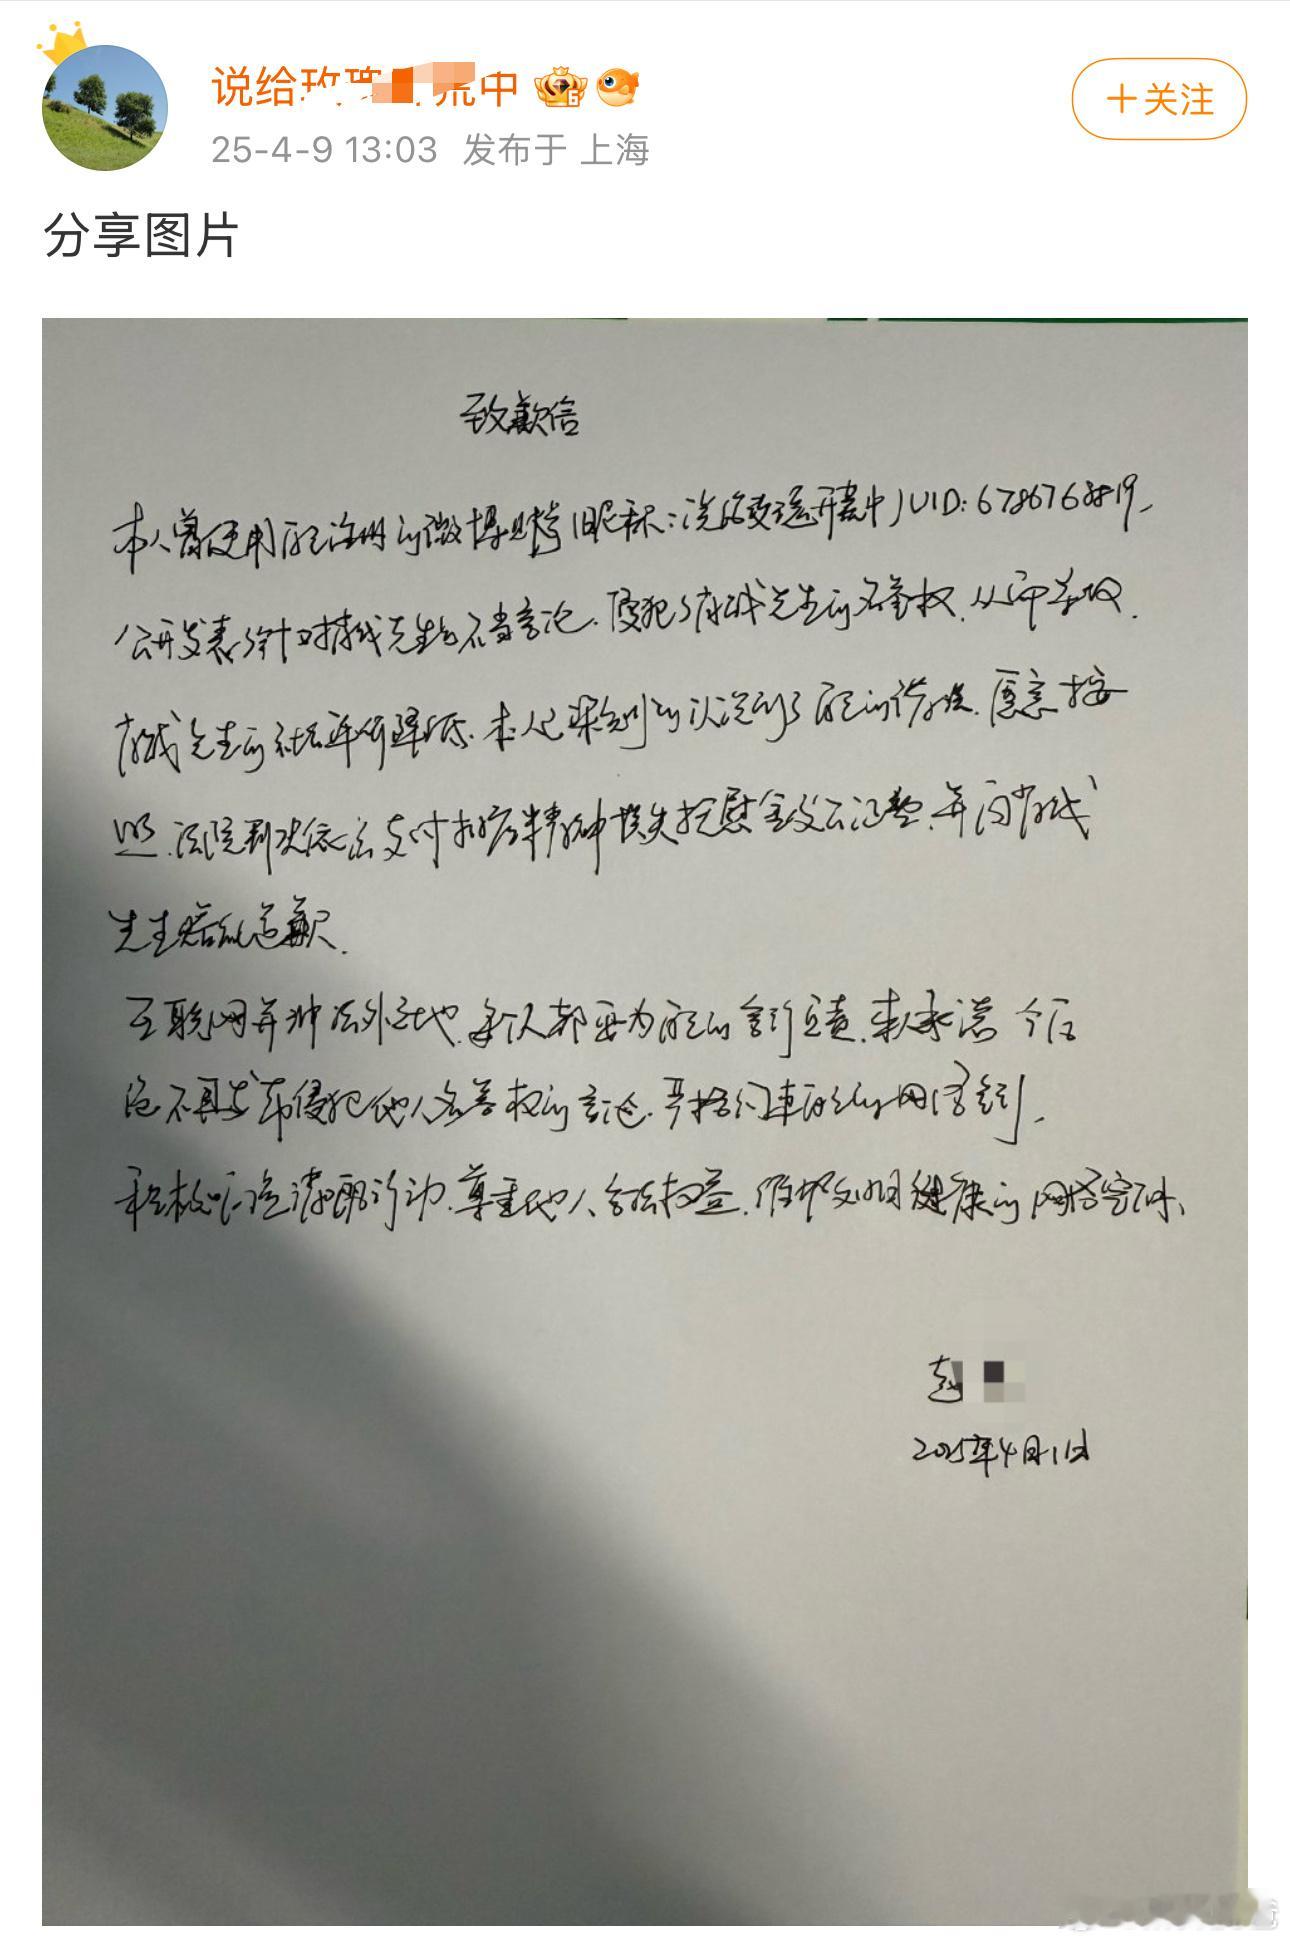 说给玫 中
25-4-9 13:03 发布于 上海
+关注
分享图片
致歉信
本人曾使用自己注册的微博账号(昵称:说给玫瑰开荒中)UID:6786763819,
公开发表了针对 先生的不当言论,侵犯了 先生的名誉权,从而导致
先生的社会评价降低,本人已深刻的认识到了自己的错误,愿意按
照法院判决依法支付 精神损失抚慰金及公证费,并向
先生赔礼道歉.
互联网并非法外之地,每个人都要为自己的言行负责,本人承诺今后
绝不再发布侵犯他人名誉权的言论,严格约束自己的网络言行,
积极 行动,尊重他人合法权益,维护文明健康的网络空间、
赵
2025年4月1日